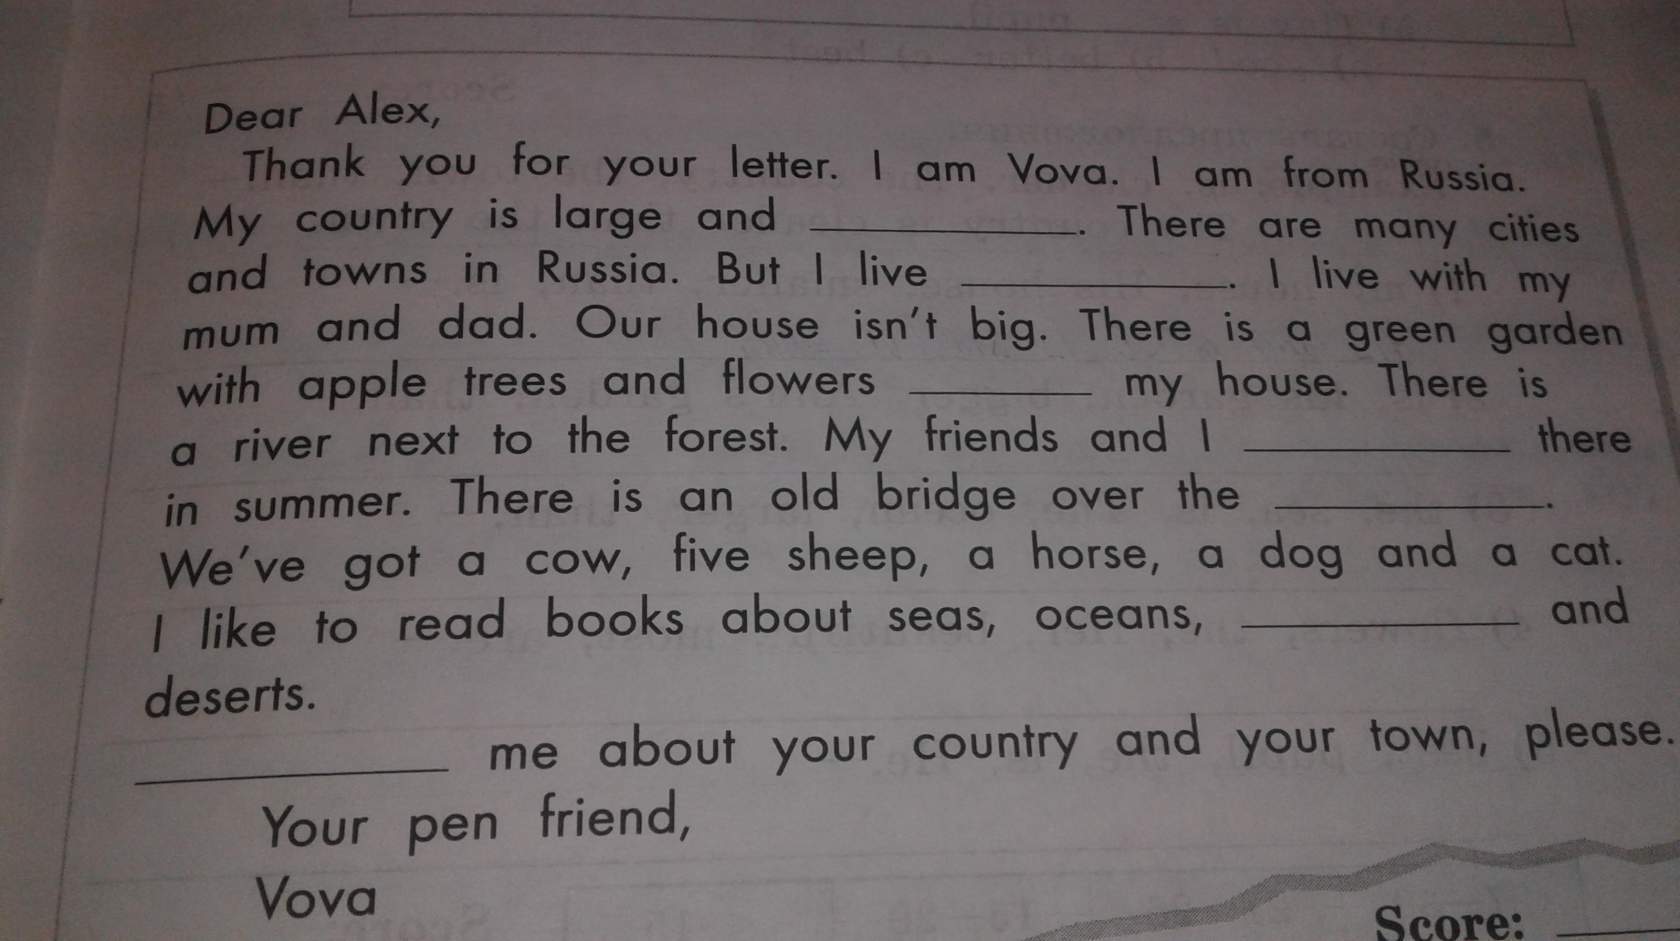 Dear Alex,
Thank you for your letter. I am Vova. I am from Russia.
My country is large and ____________. There are many cities
and towns in Russia. But I live ____________. I live with my
mum and dad. Our house isn't big. There is a green garden
with apple trees and flowers ________ my house. There is
a river next to the forest. My friends and I ____________ there
in summer. There is an old bridge over the ____________.
We've got a cow, five sheep, a horse, a dog and a cat.
I like to read books about seas, oceans, ____________ and
deserts.
____________ me about your country and your town, please.
Your pen friend,
Vova
Score: ____